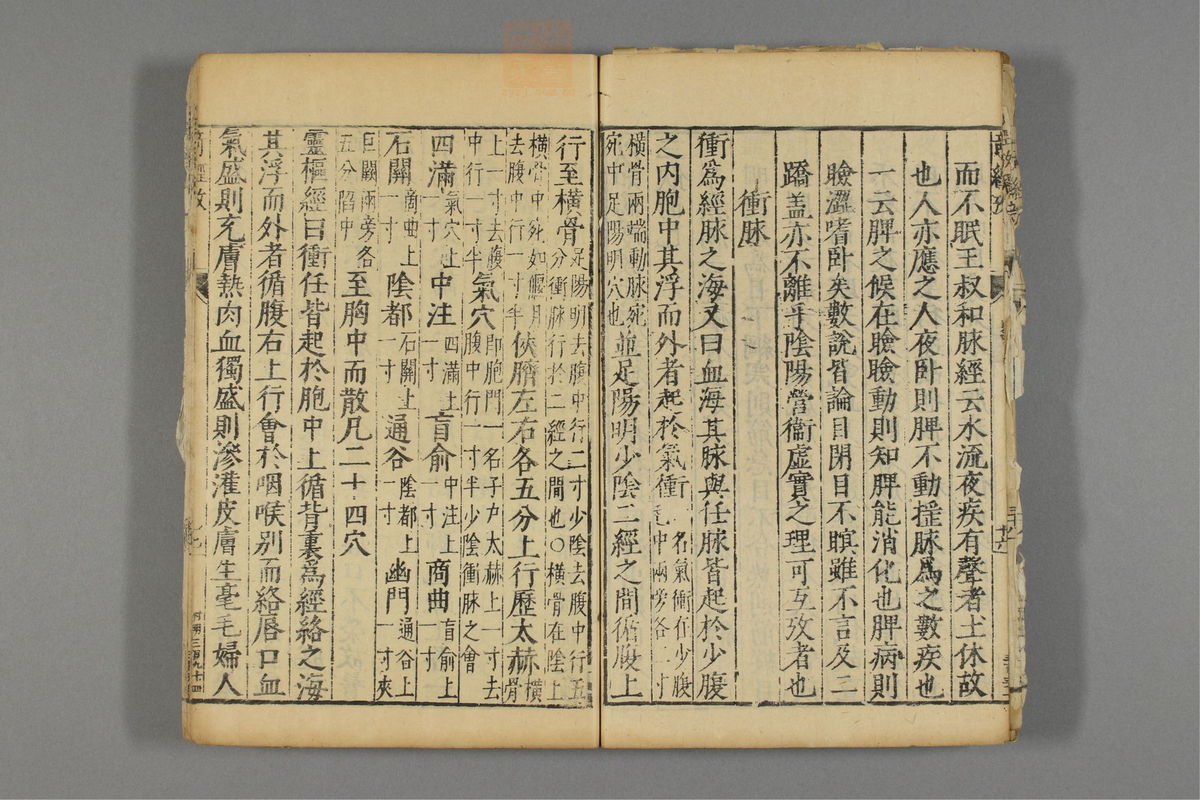 而不眠王叔和脉經云水流夜疾有聲者土休故
也人亦應之人夜卧則脾不動揺脉為之數疾也
一云脾之候在瞼瞼動則知脾能消化也脾病則
瞼澀嗜卧矣數說皆論目閉目不瞑雖不言及二
蹻盖亦不離乎陰陽營衞虛實之理可互攷者也
衝脉
衝為經脉之海又曰血海其脉與任脉皆起於少腹
之内胞中其浮而外者起於氣衝一名氣衝在少腹毛中兩傍各二寸
橫骨兩端動脉宛宛中足陽明穴也並足陽明少陰二經之間循腹上
行至橫骨足陽明去腹中行二寸少陰去腹中行五分衝脉行於二經之間也○橫骨在陰上
橫骨中宛如偃月去腹中行一寸半俠臍左右各五分上行歷大赫橫骨
上一寸去腹中行一寸半氣穴即胞門一名子户大赫上一寸去腹中行一寸半少陰衝脉之會
四滿氣穴上一寸中注四滿上一寸肓俞中注上一寸商曲肓俞上一寸
石關商曲上一寸陰都石關上一寸通谷陰都上一寸幽門通谷上一寸夾
巨闕兩旁各五分陷中至胸中而散凡二十四穴
靈樞經曰衝任皆起於胞中上循背裏為經絡之海
其浮而外者循腹右上行會於咽喉别而絡唇口血
氣盛則充膚熱肉血獨盛則滲灌皮膚生毫毛婦人